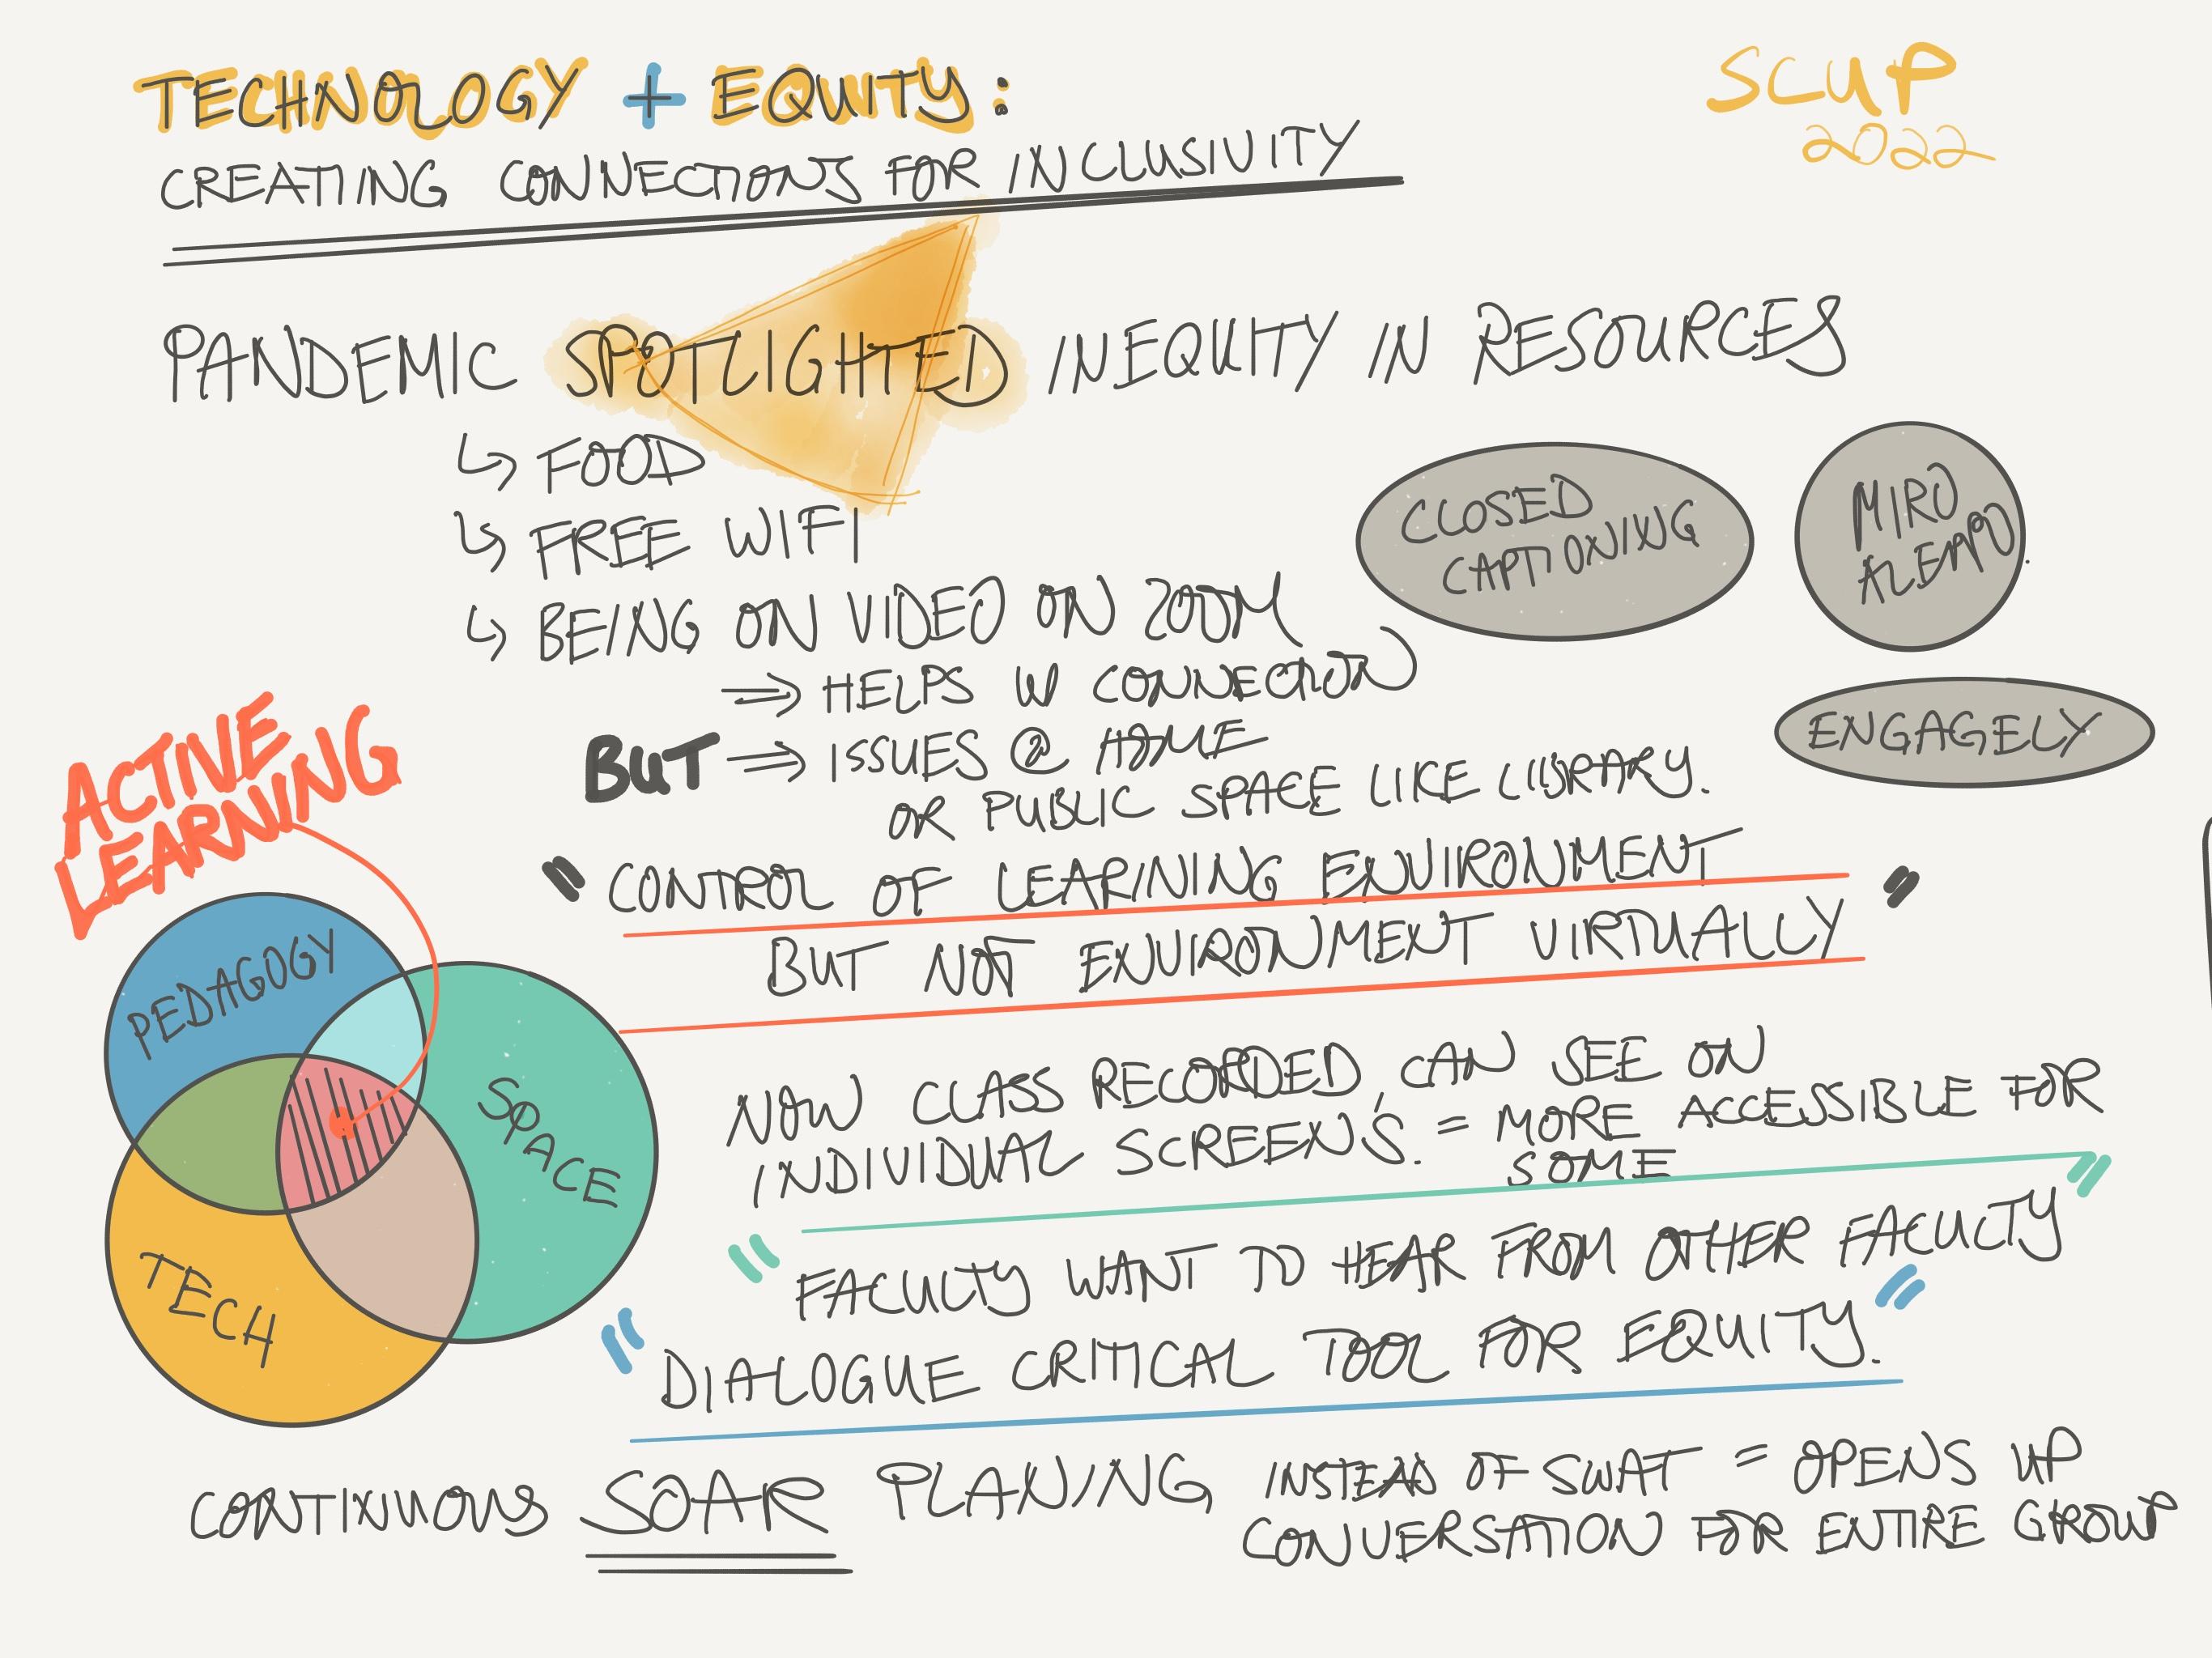 TECHNOLOGY + EQUITY:
SCUP
2022
CREATING CONNECTIONS FOR INCLUSIVITY
PANDEMIC SPOTLIGHTED INEQUITY IN RESOURCES
↳ FOOD
↳ FREE WIFI
↳ BEING ON VIDEO ON ZOOM
⇒ HELPS W CONNECTION
BUT ⇒ ISSUES @ HOME
OR PUBLIC SPACE LIKE LIBRARY.
CLOSED
CAPTIONING
MIRO
ENGAGELY
"CONTROL OF LEARNING ENVIRONMENT"
BUT NOT ENVIRONMENT VIRTUALLY
ACTIVE
LEARNING
PEDAGOGY
SPACE
TECH
NOW CLASS RECORDED, CAN SEE ON
INDIVIDUAL SCREENS. = MORE ACCESSIBLE FOR
SOME
"FACULTY WANT TO HEAR FROM OTHER FACULTY"
"DIALOGUE CRITICAL TOOL FOR EQUITY."
CONTINUOUS SOAR PLANING INSTEAD OF SWAT = OPENS UP
CONVERSATION FOR ENTIRE GROUP